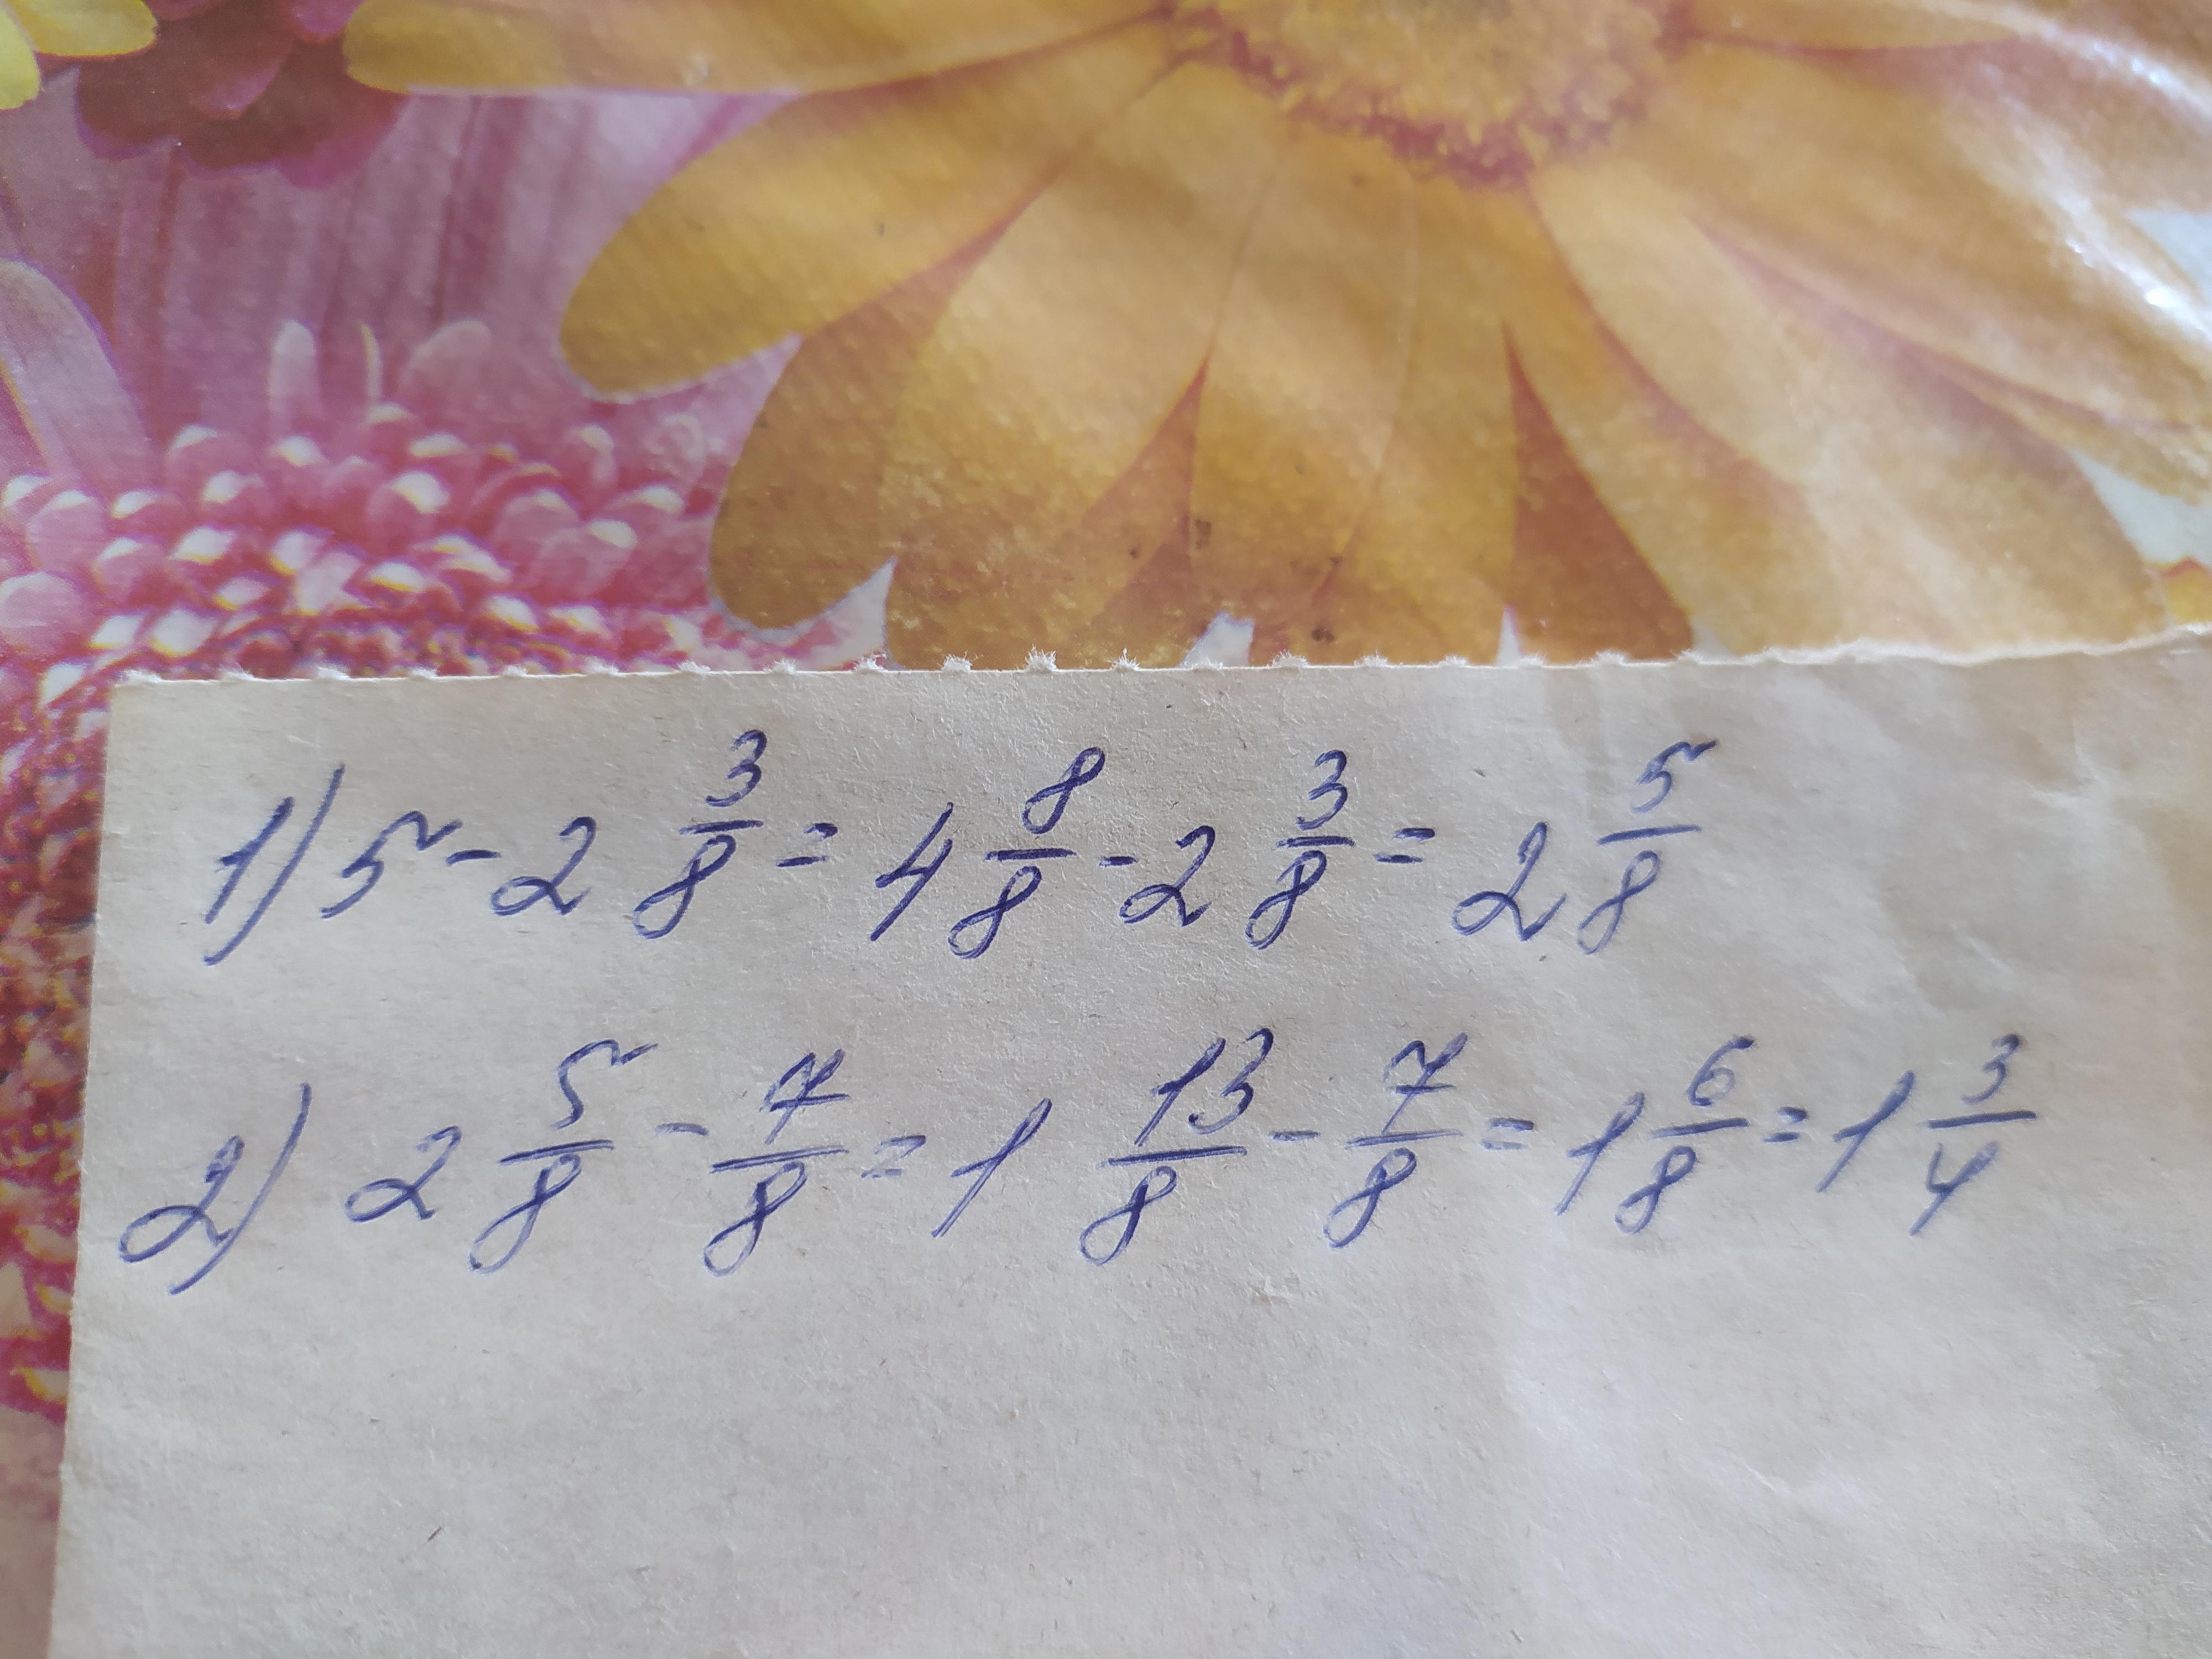 1) 5 - 2 3/8 = 4 8/8 - 2 3/8 = 2 5/8
2) 2 5/8 - 7/8 = 1 13/8 - 7/8 = 1 6/8 = 1 3/4